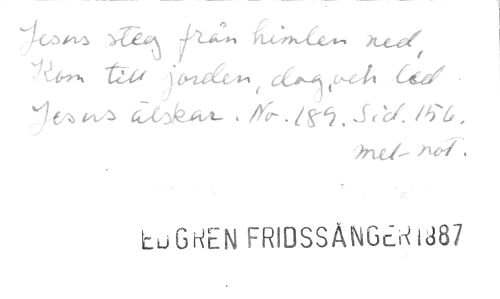 Jesus steg från himlen ned,
Kom till jorden, dog, och led
Jesus älskar. No. 189. Sid. 156.
mel-not.
EDGREN FRIDSSÅNGER 1887